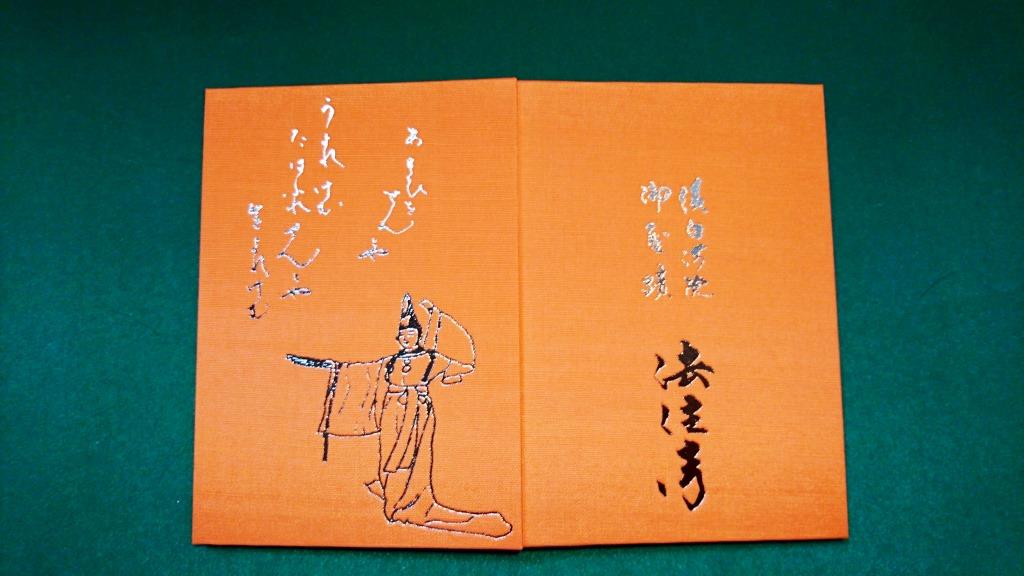 後白河院
御聖蹟
法住寺
あそひをせんとや
うまれけむ
たはふれせんとや
生まれけむ